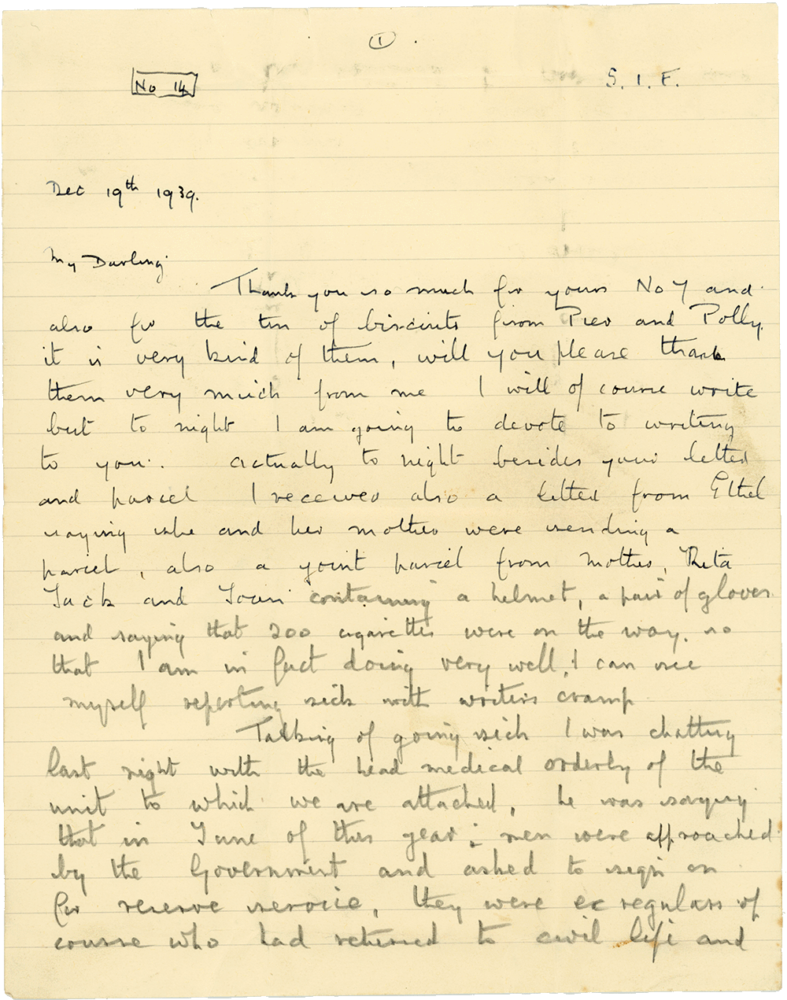 ①
No 14
S. I. F.
Dec 19th 1939.
My Darling
Thank you so much for yours No 7 and
also for the tin of biscuits from and Polly,
it is very kind of them, will you please thank
them very much from me I will of course write
but to night I am going to devote to writing
to you. Actually to night besides your letter
and parcel I received also a letter from Ethel
saying she and her mother were sending a
parcel, also a joint parcel from Mother,
Jack and Joan containing a helmet, a pair of gloves
and saying that 200 cigarettes were on the way. so
that I am in fact doing very well, I can see
myself reporting sick with writers cramp
Talking of going sick I was chatting
last night with the head medical orderly of the
unit to which we are attached, he was saying
that in June of this year men were approached
by the Government and asked to sign on
for reserve service, they were ex regulars of
course who had returned to civil life and